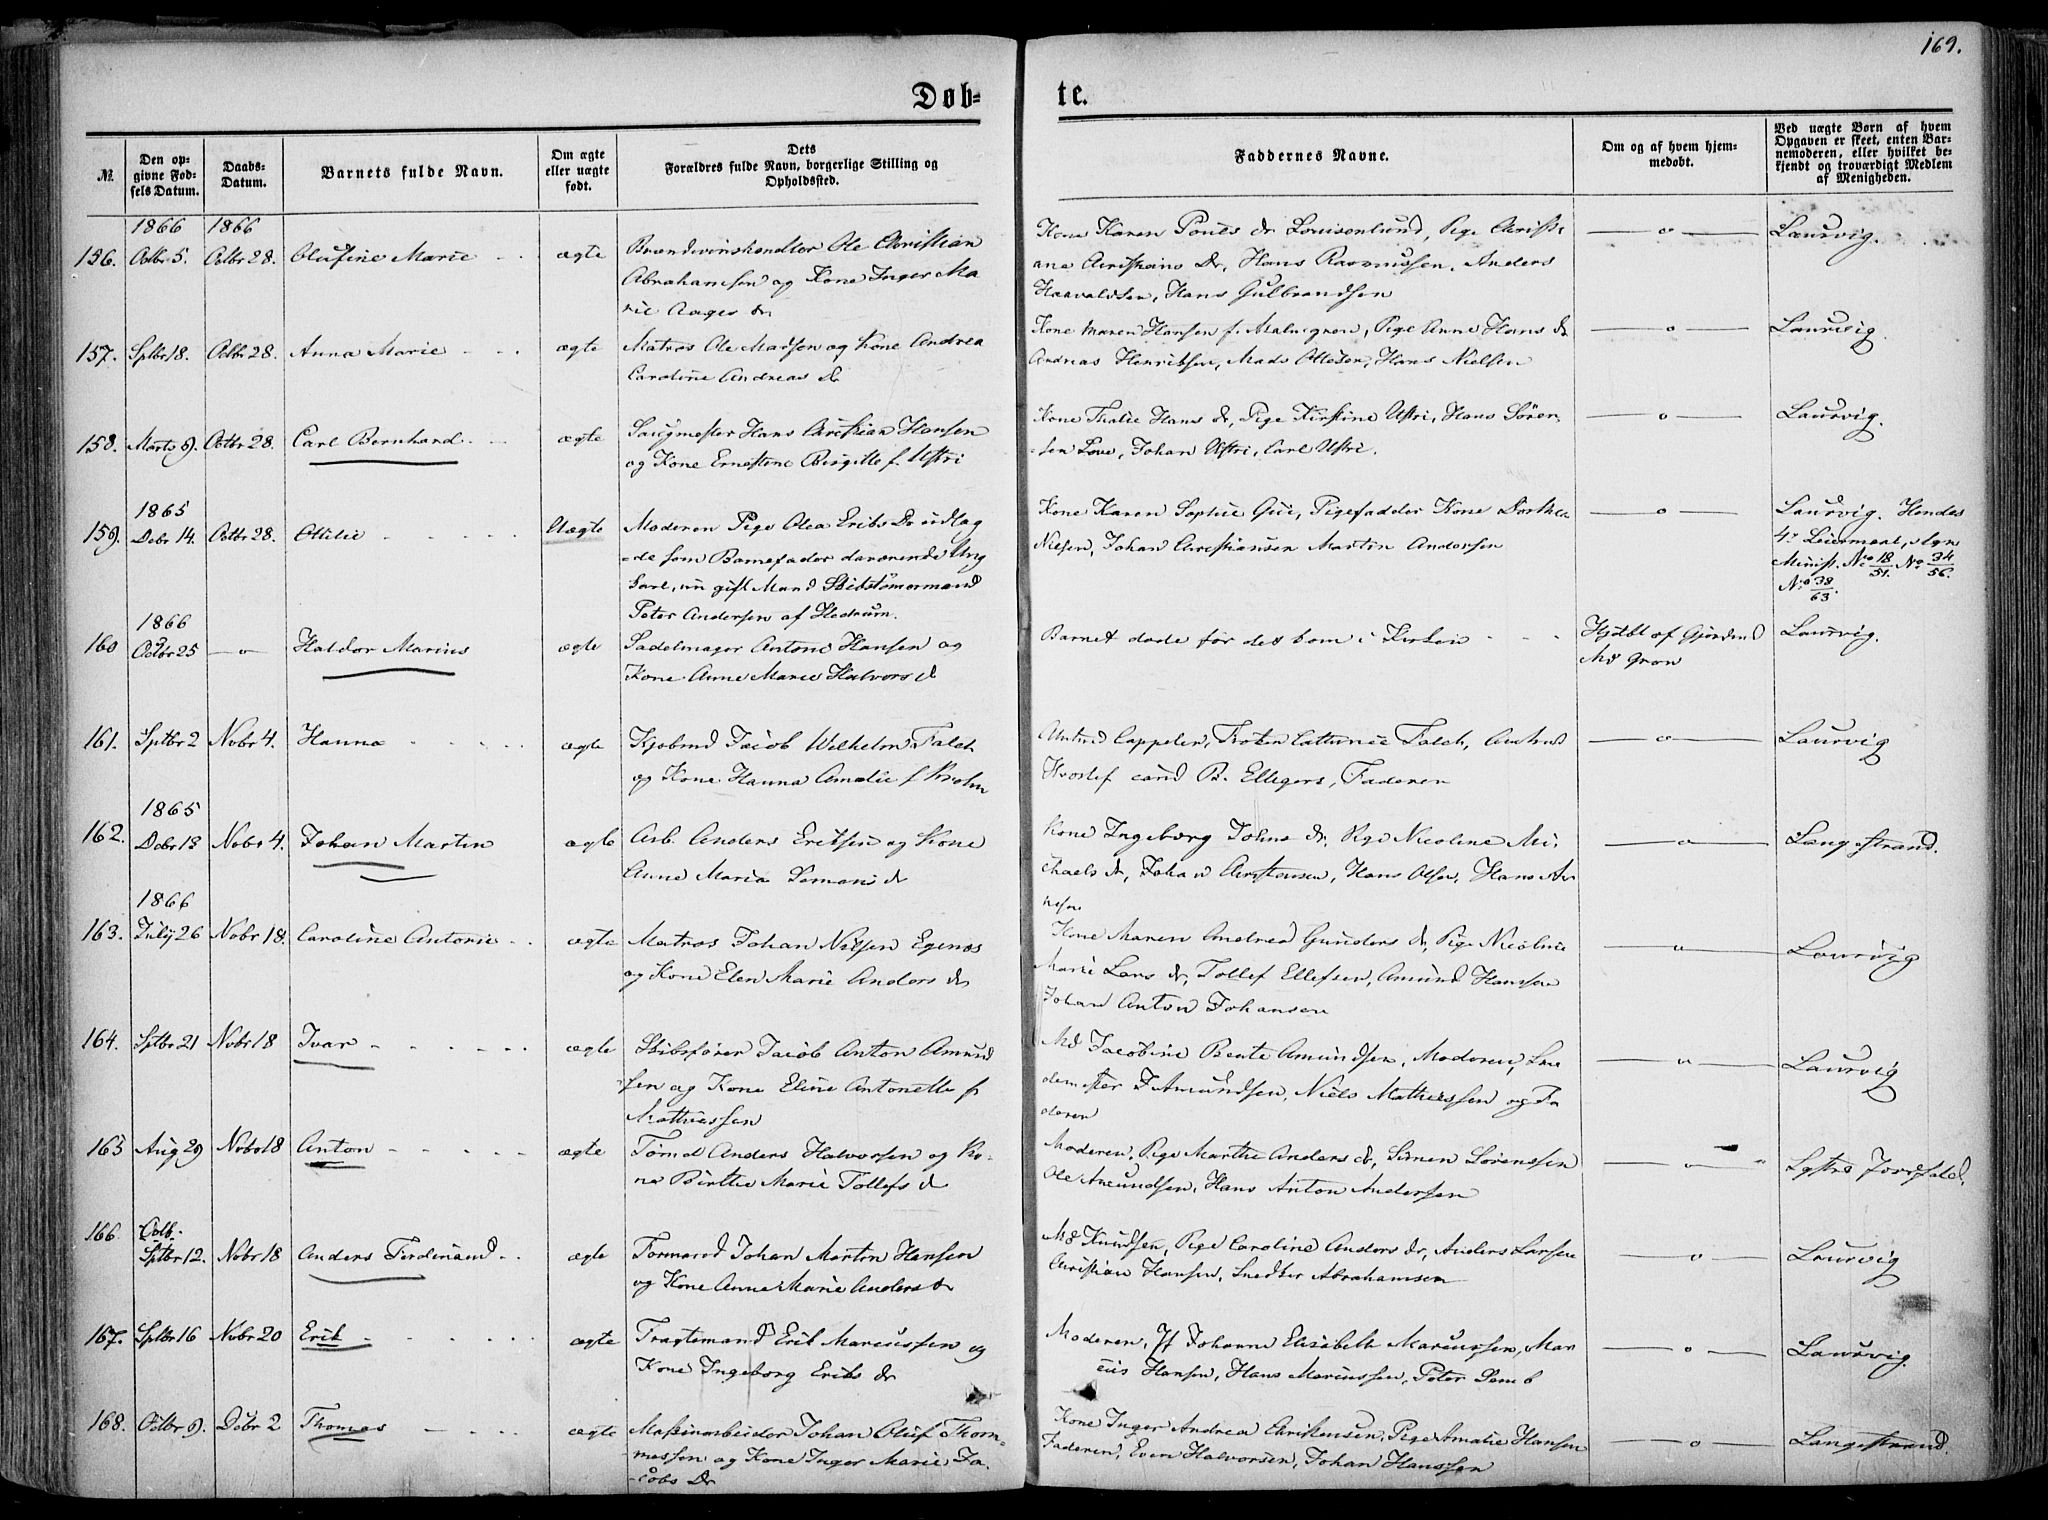 169.
Døb-
te.
№
Den op-
givne Fød-
sels Datum.
Daabs-
Datum.
Barnets fulde Navn.
Om ægte
eller uægte
født.
Dets
Forældres fulde Navn, borgerlige Stilling og
Opholdssted.
Faddernes Navne.
Om og af hvem hjem-
medøbt.
Ved uægte Børn af hvem
Opgaven er skeet, enten Bar-
nemoderen, eller hvilket be-
kjendt og troværdigt Medlem
af Menigheden.
1866 1866
156. Octbr 5. Octbr 28. Olufine Marie - - ægte Brændevinshandler Ole Christian
Abrahamsen og Kone Inger Ma
rie Aages dr
Kone Karen Pouls dr Louisenlund, Pige Christi-
ane Christians Dr, Hans Rasmussen, Anders
Haavaldsen, Hans Gulbrandsen
—o— Laurvig.
157. Sptbr 18. Octbr 28. Anna Marie - - - ægte Matros Ole Madsen og Kone Andrea
Caroline Andreas D
Kone Maren Hansen f. Malmgren, Pige Anne Hans dr
Andreas Henriksen, Mads Ottesen, Hans Nielsen
—o— Laurvig.
158. Marts 9. Octbr 28. Carl Bernhard - - ægte Saugmester Hans Christian Hansen
og Kone Ernestine Birgitte f. Ustri
Kone Thalie Hans dr, Pige Kirstine Ustri, Hans Søren-
sen Love, Johan Ustri, Carl Ustri.
—o— Laurvig.
1865
159. Debr 14. Octbr 28. Ottilie - - - - - Uægte Moderen Pige Olea Eriks Dr udlag
de som Barnefader daværende Ung
karl, nu gift Mand Skibstømmermand
Peter Andersen af Hedrum.
Kone Karen Sophie Gui, Pigefadder Kone Dorthea
Nilsen, Johan Christiansen Martin Andersen
—o— Laurvig. Hendes
4de Leiermaal,
Minist. No 18/51. No 34/56.
No 38/63.
1866
160 Octbr 25 —o— Haldor Marius ægte Sadelmager Anton Hansen og
Kone Anne Marie Halvors d
Barnet døde før det kom i Kirken - - -
Hjdbt af Gjordem
Md Gron
Laurvig.
161. Sptbr 2 Nobr 4. Hanna - - - - ægte Kjøbmd Jacob Wilhelm Falch
og Kone Hanna Amalie f Krohn
Cappelen, Frøken Cathrine Falch,
cand B. Ellegers, Faderen
—o— Laurvig
1865
162. Debr 13 Nobr 4. Johan Martin ægte Arb. Anders Eriksen og Kone
Anne Maria Simons d
Kone Ingeborg Johns dr. Pige Nicoline Mi-
chaels dr, Johan Christensen, Hans Olsen, Hans An-
—o— Langestrand.
1866
163. July 26 Nobr 18. Caroline Antonie - - ægte Matros Johan Nilsen Egenæs
og Kone Elen Marie Anders dr
Kone Maren Andrea Gunders dr, Pige Nicoline
Marie Lars dr, Tollef Ellefsen, Amund Hansen
Johan Anton Johansen
—o— Laurvig
164. Sptbr 21 Nobr 18 Ivar - - - - - - ægte Skibsfører Jacob Anton Amund
sen og Kone Eline Antonette f
Mathiessen
Md Jacobine Beate Amundsen, Moderen,
F Amundsen, Niels Mathiessen og Fa
deren
—o— Laurvig
165 Aug 29 Nobr 18 Anton - - - - - ægte Tømd Anders Halvorsen og Ko-
ne Birthe Marie Tollefs d
Moderen, Pige Marthe Anders dr, Simen Sørensen
Ole Amundsen, Hans Anton Andersen
—o—
166. Octb.
Sptbr 12. Nobr 18 Anders Ferdinand - - ægte Tømmermd Johan Martin Hansen
og Kone Anne Marie Anders dr
Md Knudsen, Pige Caroline Anders dr, Anders Larsen
Christian Hansen, Snedker Abrahamsen
—o— Laurvig
167. Sptbr 16 Nobr 20 Erik - - - - - - ægte Fragtemand Erik Mariussen og
Kone Ingeborg Eriks dr
Moderen, Jf Johanne Elisabeth Mariussen, Mar
ius Hansen, Hans Mariussen, Peter Semb
—o— Laurvig.
168. Octbr 9. Debr 2 Thomas - - - - ægte Maskinarbeider Johan Oluf Thom-
mesen og Kone Inger Marie Ja-
cobs Dr
Kone Inger Andrea Christensen, Pige Amalie Hansen
Faderen, Even Halvorsen, Johan Hanssen
—o— Langestrand.